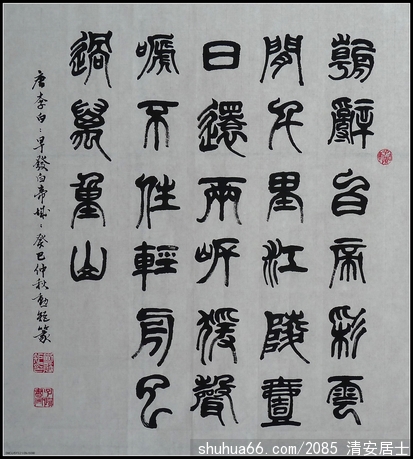 朝辭白帝彩雲
間千里江陵壹
日還兩岸猨聲
嗁不住輕舟已
過萬重山
唐李白：早發白帝城：癸巳仲秋篆
shuhua66.com/2085 清安居士